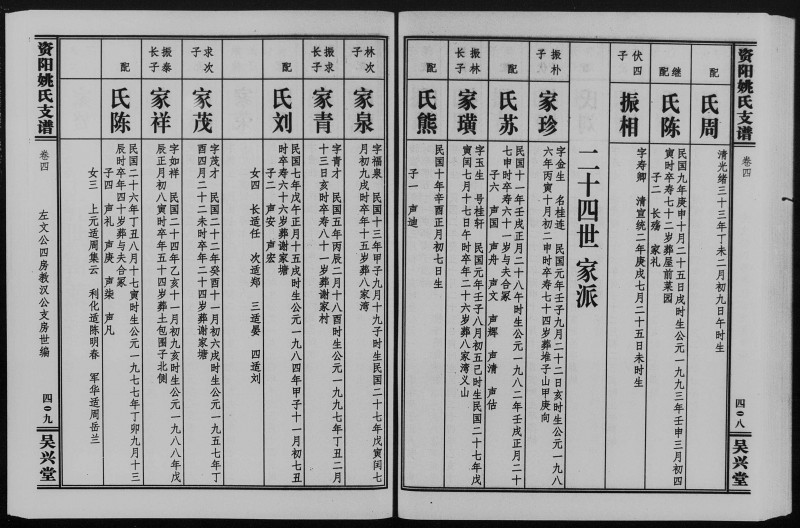 资阳姚氏支谱
卷四
四〇八
吴兴堂
配
氏周
清光绪三十三年丁未二月初九日午时生
继配
氏陈
民国九年庚申十月二十五日戌时生公元一九九三年壬申三月初四
寅时卒寿七十二岁葬屋前菜园
子二 长殇 家礼
伏四子
振相
字寿卿 清宣统二年庚戌七月二十五日未时生
二十四世 家派
振朴子
家珍
字金生 名桂连 民国元年壬子九月二十二日亥时生公元一九八
六年丙寅十月初二申时卒寿七十四岁葬堆子山甲庚向
配
氏苏
民国十一年壬戌正月二十八午时生公元一九八二年壬戌正月二十
七申时卒寿六十一岁与夫合冢
子六 声国 声舟 声文 声辉 声清 声估
振林长子
家璜
字玉生 号桂轩 民国元年壬子八月初五己时生民国二十七年戊
寅闰七月十七日午时卒年二十六岁葬八家湾义山
配
氏熊
民国十年辛酉正月初七日生
子一 声迪
林次子
家泉
字福泉 民国十三年甲子九月十九子时生民国二十七年戊寅闰七
月初九戌时卒年十五岁葬八家湾
振求长子
家青
字青才 民国五年丙辰二月十八酉时生公元一九九七年丁丑二月
十三日亥时卒寿八十一岁葬谢家村
配
氏刘
民国七年戊午正月十五戌时生公元一九八四年甲子十一月初七丑
时卒寿六十六岁葬谢家塘
子二 声安 声宏
女四 长适任 次适郑 三适晏 四适刘
求次子
家茂
字茂才 民国二十二年癸酉十一月初六戌时生公元一九五七年丁
酉四月二十二未时卒年二十四岁葬谢家塘
振泰长子
家祥
字如祥 民国二十四年乙亥十一月初九亥时生公元一九八八年戊
辰正月初八寅时卒年五十四岁葬土包围子北侧
配
氏陈
民国二十六年丁丑八月十七寅时生公元一九七七年丁卯九月十三
辰时卒年四十岁葬与夫合冢
子四 声礼 声庚 声柴 声凡
女三 上元适周集云 利化适陈明春 军华适周岳兰
资阳姚氏支谱
卷四
左文公四房教汉公支房世编
四〇九
吴兴堂